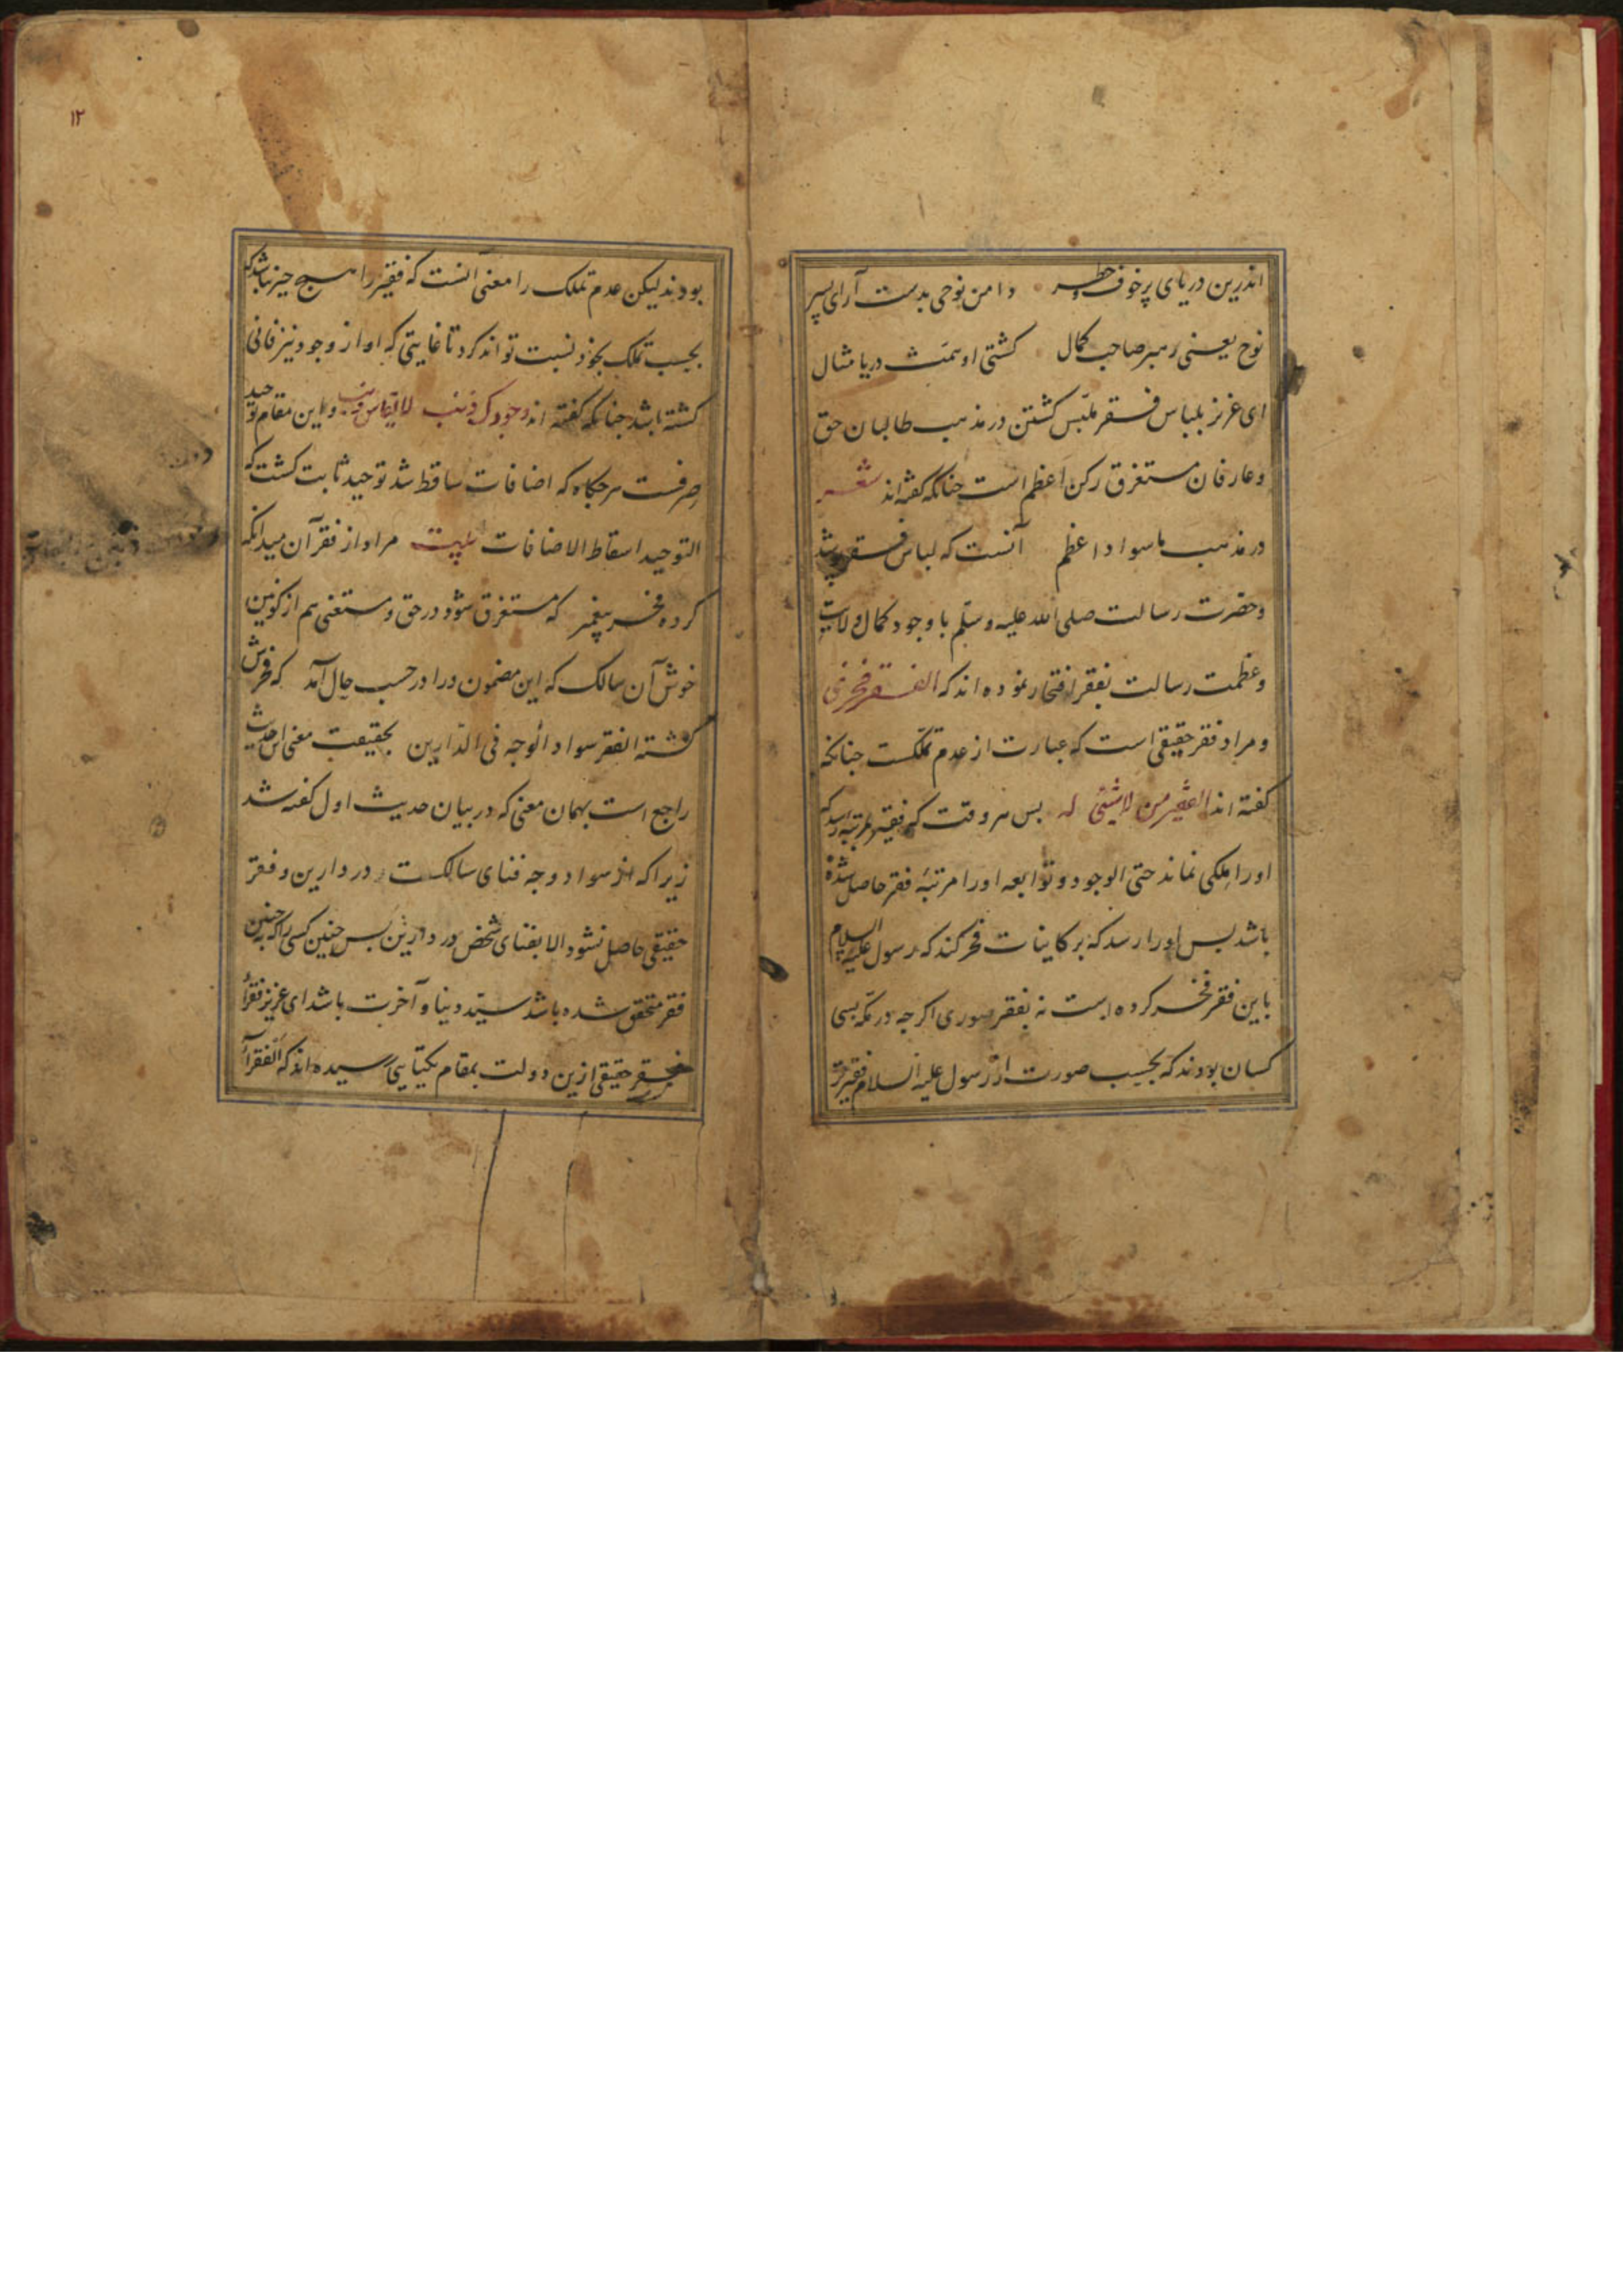 اندرین دریای پرخوف و خطر دامن نوحی بدست آر ای پسر
نوح یعنی رهبر صاحب کمال کشتی او همتش دریا مثال
ای عزیز بلباس فقر ملبس کشتن در مذهب طالبان حق
وعارفان مستغرق رکن اعظم است جنانکه کفته اند شعر
در مذهب ما سواد اعظم آنست که لباس فقر پوشد
وحضرت رسالت صلی الله علیه وسلم باوجود کمال ولایت
وعظمت رسالت بفقر افتخار نموده اند که الفقر فخری
ومراد فقر حقیقی است که عبارت از عدم تملکست جنانکه
کفته اند الفقیر من لاشیئی له بس هر وقت که فقیر بمرتبه رسد که
اورا ملکی نماند حتی الوجود وتوابعه اورا مرتبهٔ فقر حاصل شده
باشد بس اورا رسد که بر کاینات فخر کند که رسول علیه السلام
باین فقر فخر کرده است نه بفقر صوری اکرجه در مکه بسی
کسان بودند که بحسب صورت از رسول علیه السلام فقیرتر
۱۲
بودند لیکن عدم تملک را معنی آنست که فقیر را هیچ جیز نباشد که
بحسب تملک بخود نسبت تواند کرد تا غایتی که او از وجود نیز فانی
کشته باشد جنانکه کفته اند وجودک ذنب لایقاس به ذنب واین مقام توحید
صرفست هرجکاه که اضافات ساقط شد توحید ثابت کشت که
التوحید اسقاط الاضافات بیت مراد از فقر آن میدانکه
کرده فخر پیغمبر که مستغرق شود در حق ومستغنی هم از کونین
خوش آن سالک که این مضمون ورا در حسب حال آمد که فخرش
کشته الفقر سواد الوجه فی الدارین بحقیقت معنی این حدیث
راجع است بهمان معنی که در بیان حدیث اول کفته شد
زیراکه از سواد وجه فنای سالکست در دارین وفقر
حقیقی حاصل نشود الا بفنای شخص در دارین بس جنین کسی راکه به جنین
فقر متحقق شده باشد سید دنیا و آخرت باشد ای عزیز فقرا
فقر حقیقی ازین دولت بمقام یکتایی رسیده اند که الفقرآء